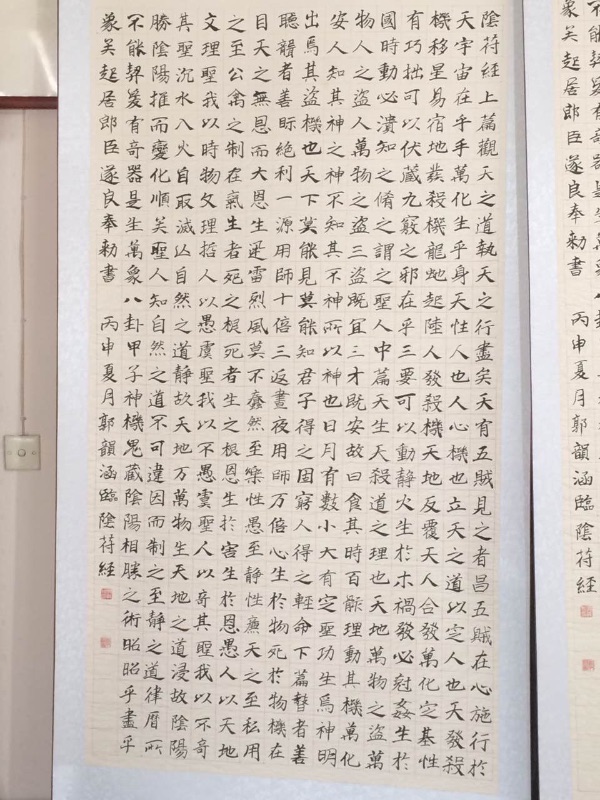 陰符經上篇觀天之道執天之行盡矣天有五賊見之者昌五賊在心施行於
天宇宙在乎手萬化生乎身天性人也人心機也立天之道以定人也天發殺
機移星易宿地發殺機龍虵起陸人發殺機天地反覆天人合發萬化定基性
有巧拙可以伏藏九竅之邪在乎三要可以動静火生於木禍發必尅姦生於
國時動必潰知之脩之謂之聖人中篇天生天殺道之理也天地萬物之盗萬
物人之盗人萬物之盗三盗既宜三才既安故曰食其時百骸理動其機萬化
安人知其神之神不知其不神所以神也日月有數小大有定聖功生焉神明
出焉其盗機也天下莫能見莫能知君子得之固窮人得之輕命下篇瞽者善
聽聾者善眎絶利一源用師十倍三返晝夜用師万倍心生於物死於物機在
目天之無恩而大恩生迅雷烈風莫不蠢然至樂性愚至静性廉天之至私用
之至公禽之制在氣生者死之根死者生之根恩生於害生於恩愚人以天地
文理聖我以時物文理哲人以愚虞聖我以不愚虞聖人以奇其聖我以不奇
其聖沉水入火自取滅亾自然之道静故天地万萬物生天地之道浸故陰陽
勝陰陽推而變化順矣聖人知自然之道不可違因而制之至静之道律曆所
不能契爰有奇器是生萬象八卦甲子神機鬼藏陰陽相勝之術昭昭乎盡乎
象矣起居郎臣遂良奉勅書 丙申夏月郭韻涵臨陰符經
象矣起居郎臣遂良奉勅書 丙申夏月郭韻涵臨陰符經